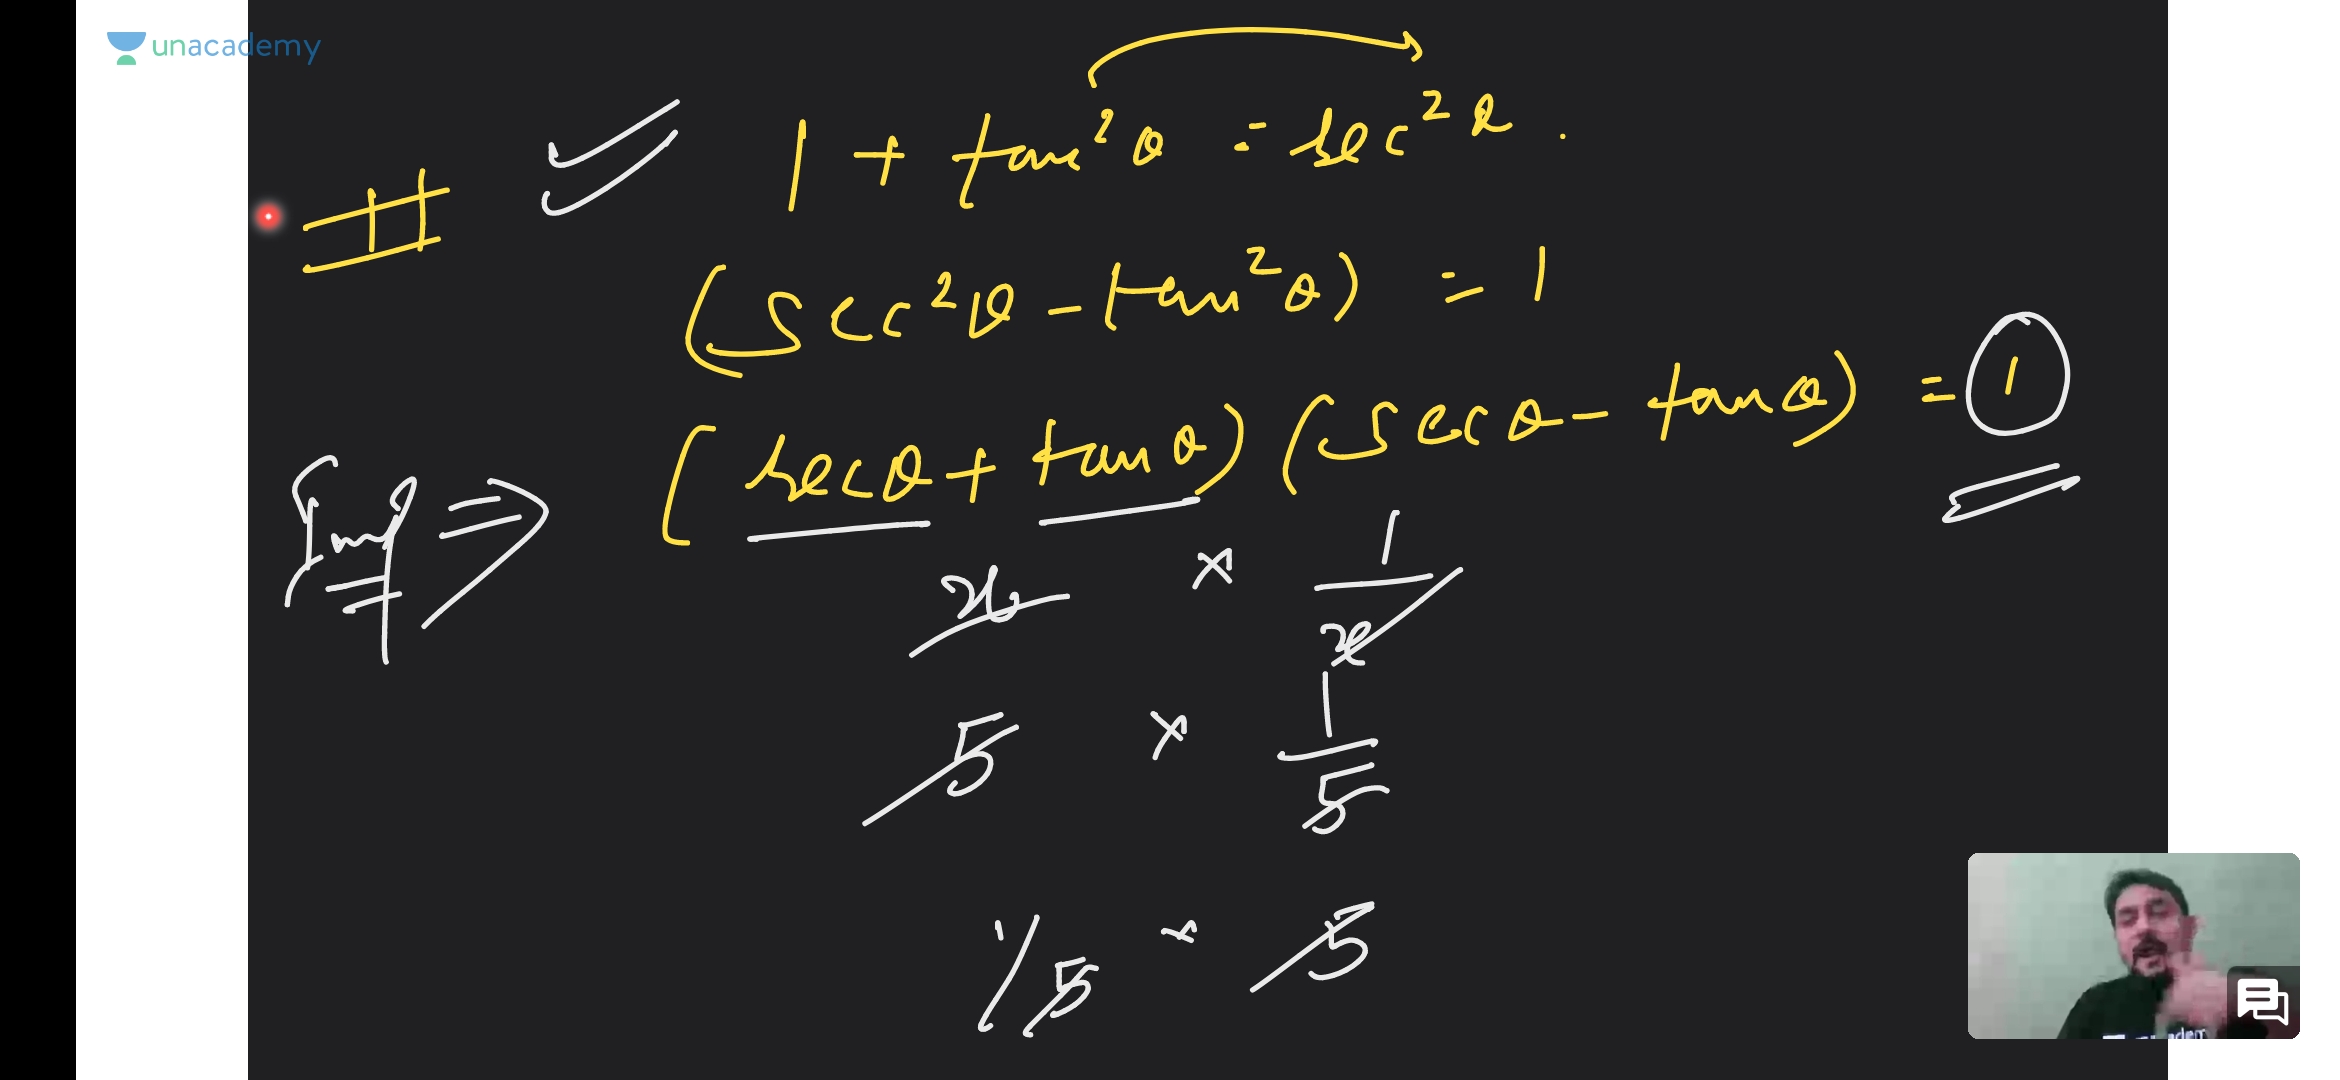 unacademy
1 + tan²θ = sec²θ.
(sec²θ - tan²θ) = 1
(secθ + tanθ) (secθ - tanθ) = 1
Imp ⇒
x × 1/x
5 × 1/5
1/5 × 5